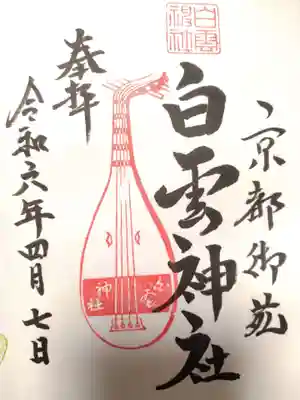 京都御苑
白雲神社
白雲神社
奉拝
白雲
神社
令和六年四月七日